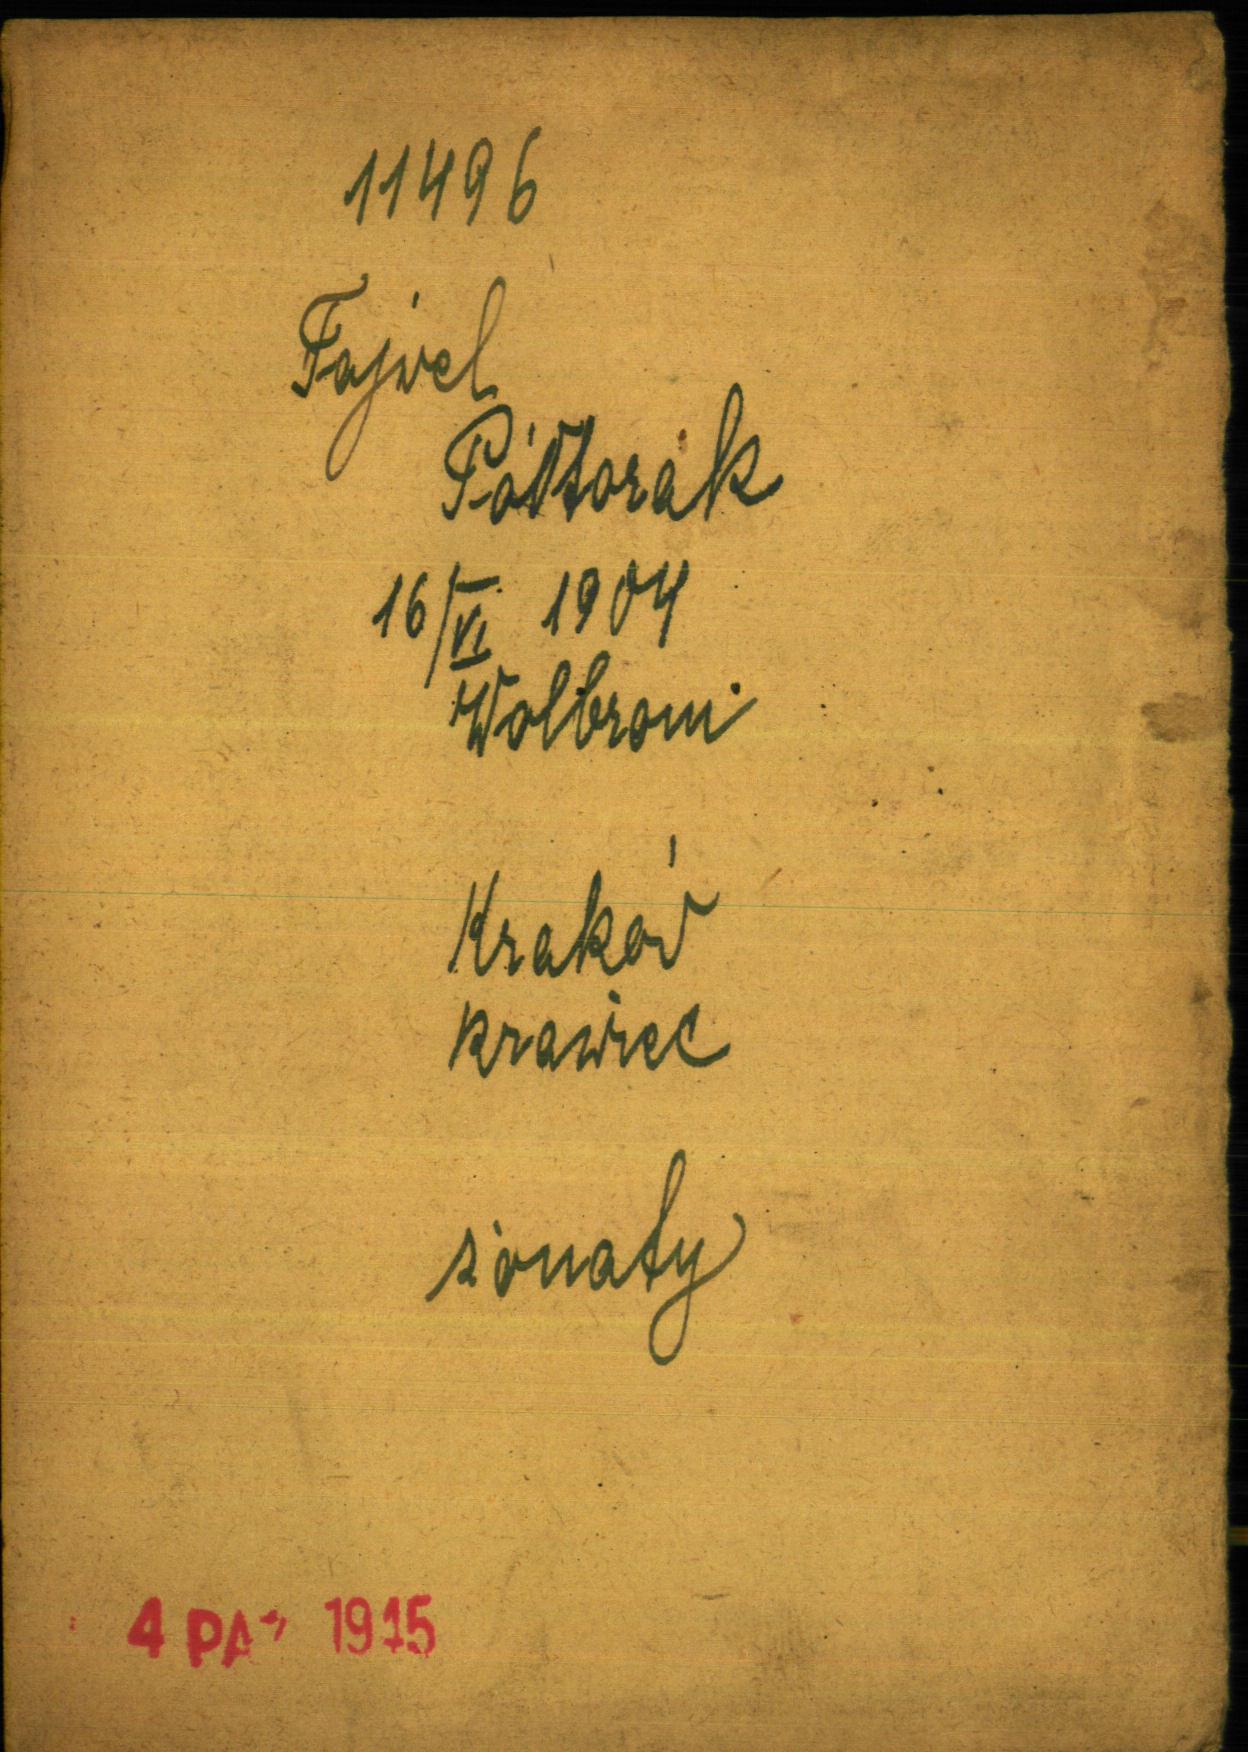 11496
Fajvel
Półtorak
16/VI 1904
Wolbrom
Kraków
krawiec
żonaty
4 PAŹ 1945